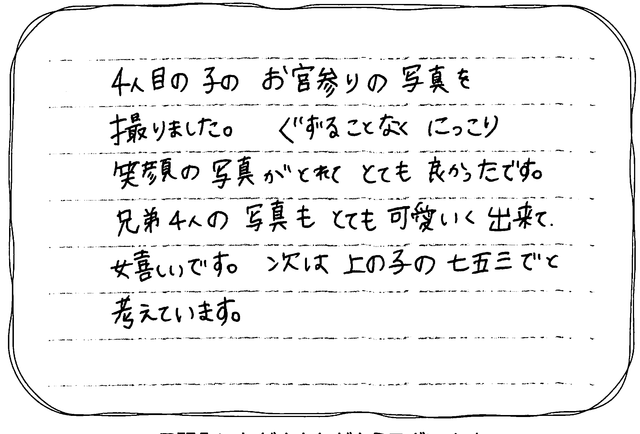 4人目の子の お宮参りの 写真を
撮りました。 ぐずることなく にっこり
笑顔の 写真がとれて とても 良かったです。
兄弟4人の 写真も とても 可愛いく 出来て、
嬉しいです。 次は 上の子の 七五三でと
考えています。